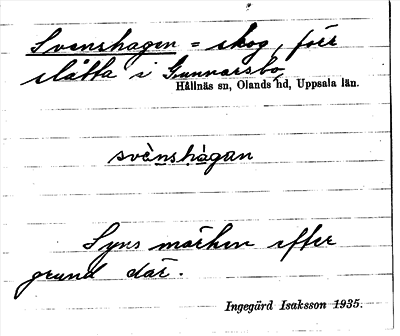 Svenshagen = skog, förr
slåtta i Gunnarsbo
Hållnäs sn, Olands hd, Uppsala län.
svènshàgan
Syns märken efter
grund där.
Ingegärd Isaksson 1935.